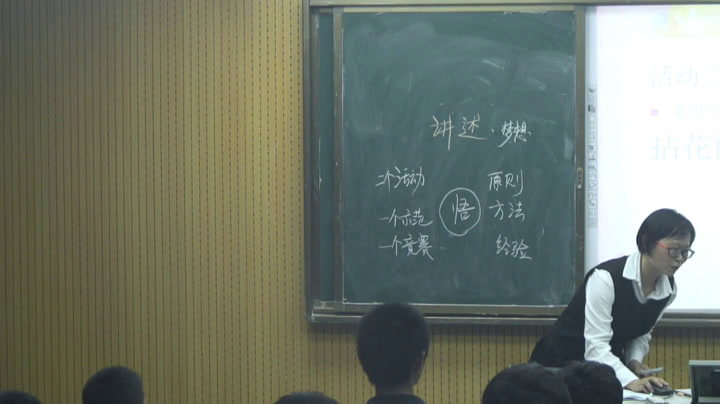 讲述·梦想
二个活动 原则
一个示范 悟 方法
一个竞赛 经验
活动
拈花